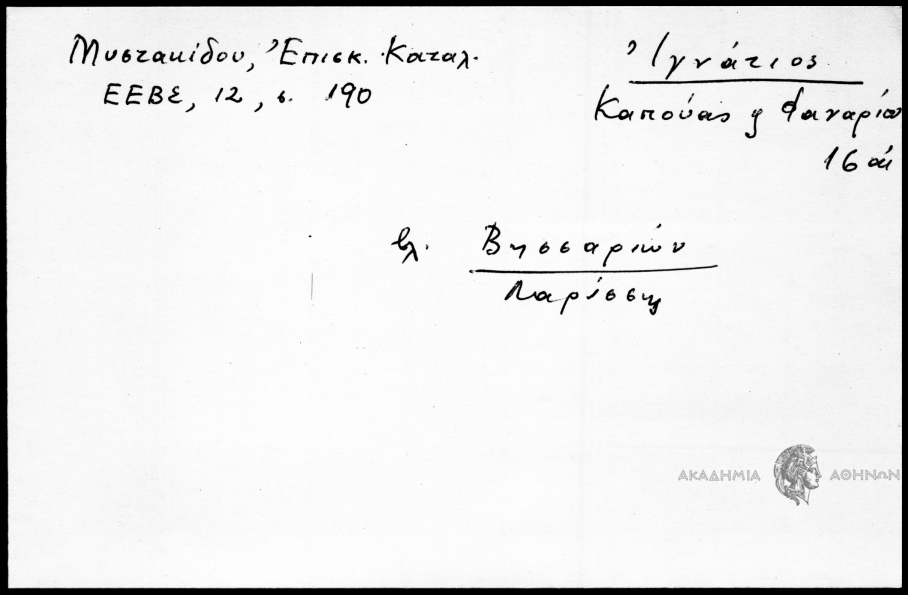 Μυστακίδου, Ἐπισκ. Καταλ.
ΕΕΒΣ, 12, σ. 190
Ἰγνάτιος
Καπούας ἢ Φαναρίου
16 αἰ
βλ. Βησσαριών
Λαρίσσης
ΑΚΑΔΗΜΙΑ ΑΘΗΝΩΝ